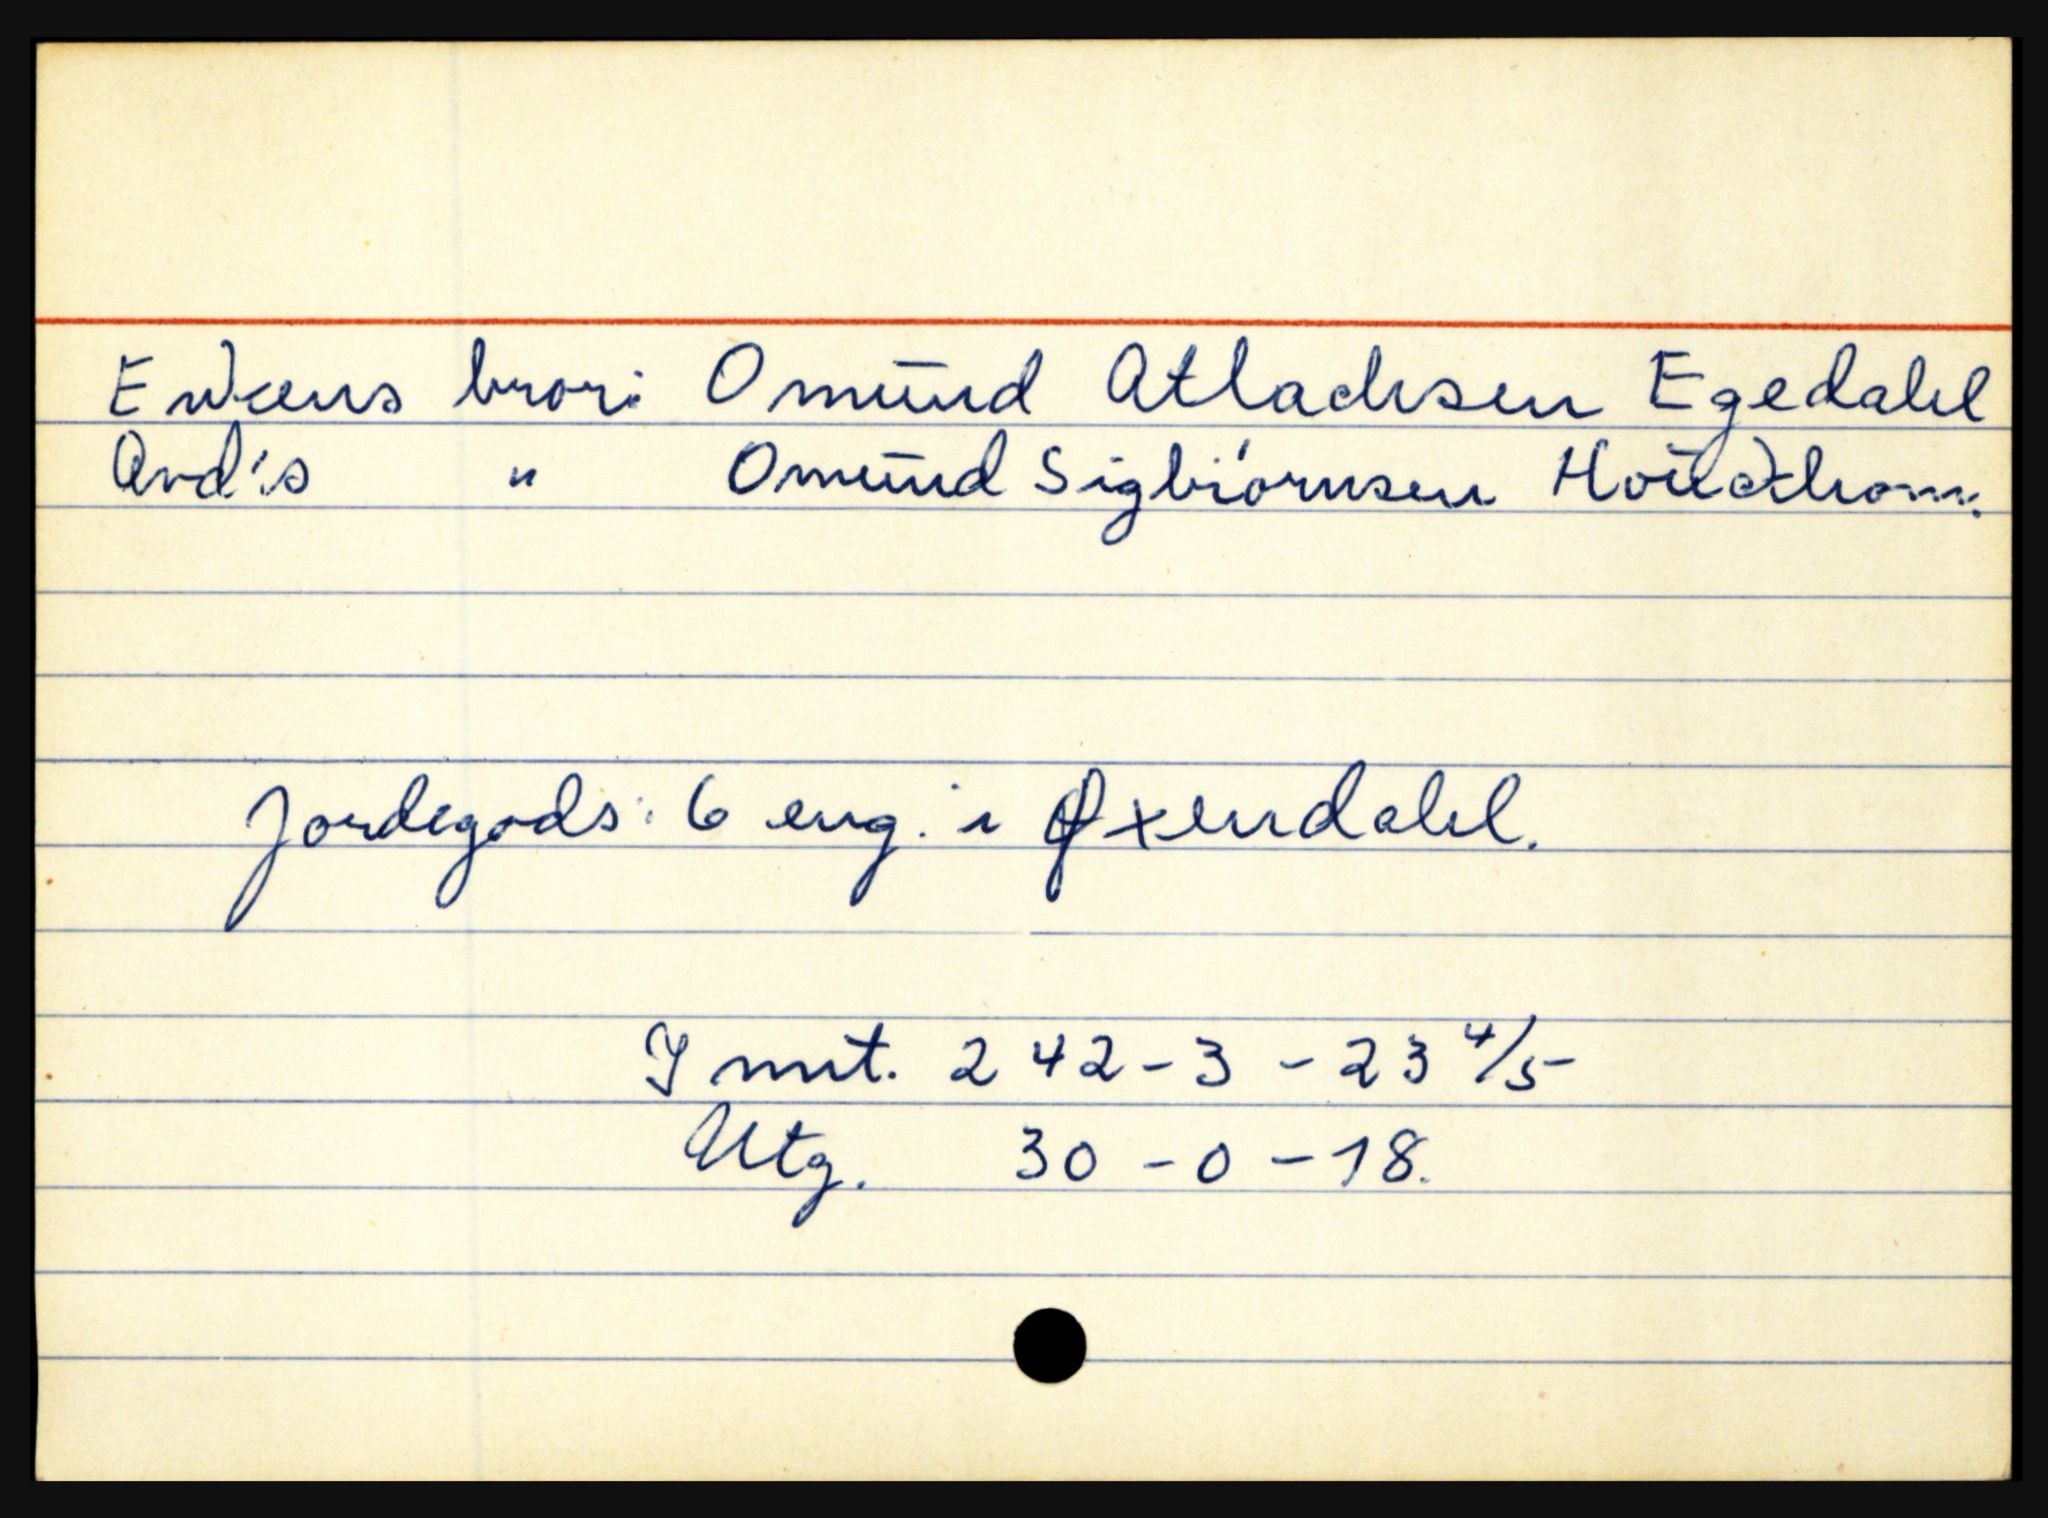 Enkens bror: Omund Atlachsen Egedahl
Avd's " Omund Sigbiørnsen
Jordegods: 6 eng. i Øxendahl.
I mnt. 242-3-23 4/5
Utg. 30-0-18.